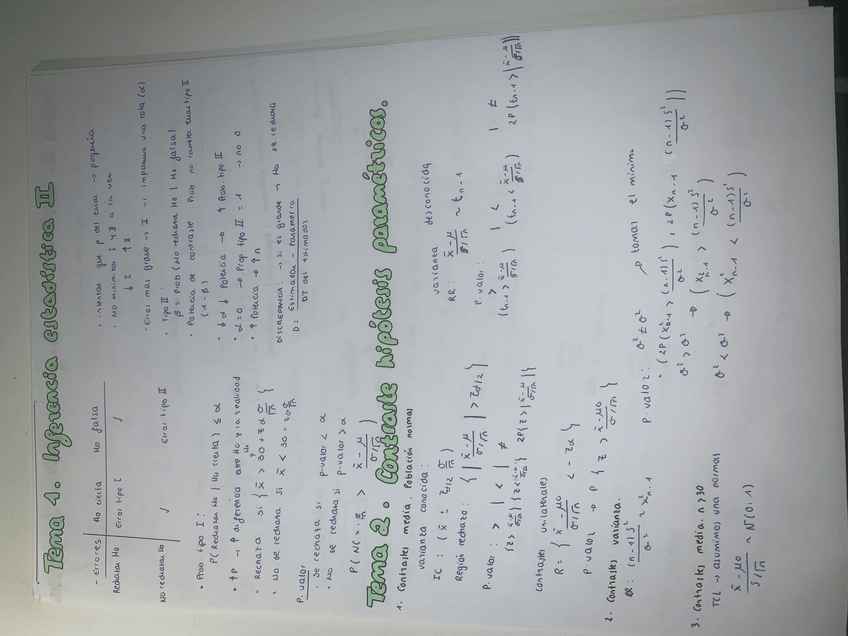 Tema 1. Inferencia estadística II
- Errores | Ho cierta | Ho falsa
Rechazar Ho | Error tipo I | ✓
No rechazar Ho | ✓ | Error tipo II
• Prob tipo I:
P(Rechazar Ho | Ho cierta) ≤ α
• Rechaza si { x̄ > 30 + z α σ/√n }
• No se rechaza si x̄ < 30
P. valor
• Se rechaza si p-valor < α
• No se rechaza si p-valor > α
• intentar que p del error → pequeña
• No minimizar I y II a la vez
↓ I ↑ II
• Error más grave → I → imponemos una cota (α)
• Tipo II:
β = Prob (No rechazar Ho | Ho falsa)
• Potencia de contraste Prob no cometer error tipo II
(1 - β)
• ↓ α ↓ Potencia → ↑ Prob. tipo II
• α = 0 → Prop tipo II = 1 → no 0
• ↑ Potencia → ↑ n
Discrepancia: → si es grande → Ho se rechaza
D = Estimador - Parámetro / DT del estimador
Tema 2. Contraste hipótesis paramétricos.
1. Contrastes media. Población normal
varianza conocida:
IC: (x̄ ± z α/2 σ/√n)
Región rechazo: { | x̄ - μ / σ/√n | > z α/2 }
P. valor: > | < | ≠
contrastes unilaterales
R = { x̄ - μo / σ/√n < - z α }
P. valor → P { z > x̄ - μo / σ/√n }
varianza desconocida
RR: x̄ - μ / s/√n ~ t n-1
P. valor: > | < | ≠
2. Contrastes varianza.
RR: (n-1) s² / σ² ~ x² n-1
P. valor: σ² ≠ σ² → tomar el mínimo
σ² > σ² → ( x² n-1 > (n-1) s² / σ² )
σ² < σ² → ( x² n-1 < (n-1) s² / σ² )
3. Contrastes media. n > 30
TCL → asumimos una normal
x̄ - μo / s/√n ~ N(0,1)